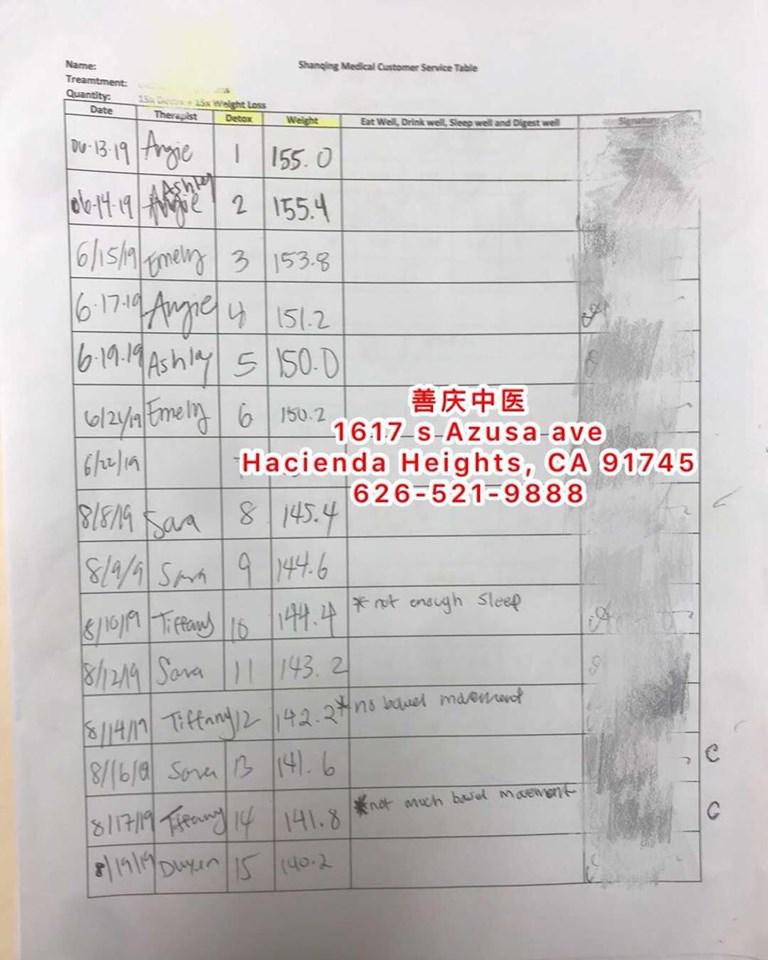 Name:
Shanqing Medical Customer Service Table
Treamtment:
Quantity: 15x Detox + 15x Weight Loss
Date Therapist Detox Weight Eat Well, Drink well, Sleep well and Digest well
06-13-19 Angie 1 155.0
06-14-19 Ashley 2 155.4
6/15/19 Emely 3 153.8
6-17-19 Angie 4 151.2
6-19-19 Ashley 5 150.0
6/21/19 Emely 6 150.2
6/22/19
善庆中医
1617 s Azusa ave
Hacienda Heights, CA 91745
626-521-9888
8/8/19 Sara 8 145.4
8/9/9 Sara 9 144.6
8/10/19 Tiffany 10 144.4 * not enough sleep
8/12/19 Sara 11 143.2
8/14/19 Tiffany 12 142.2 * no bowel movement
8/16/19 Sara 13 141.6 C
8/17/19 Tiffany 14 141.8 * not much bowel movement C
8/19/19 15 140.2